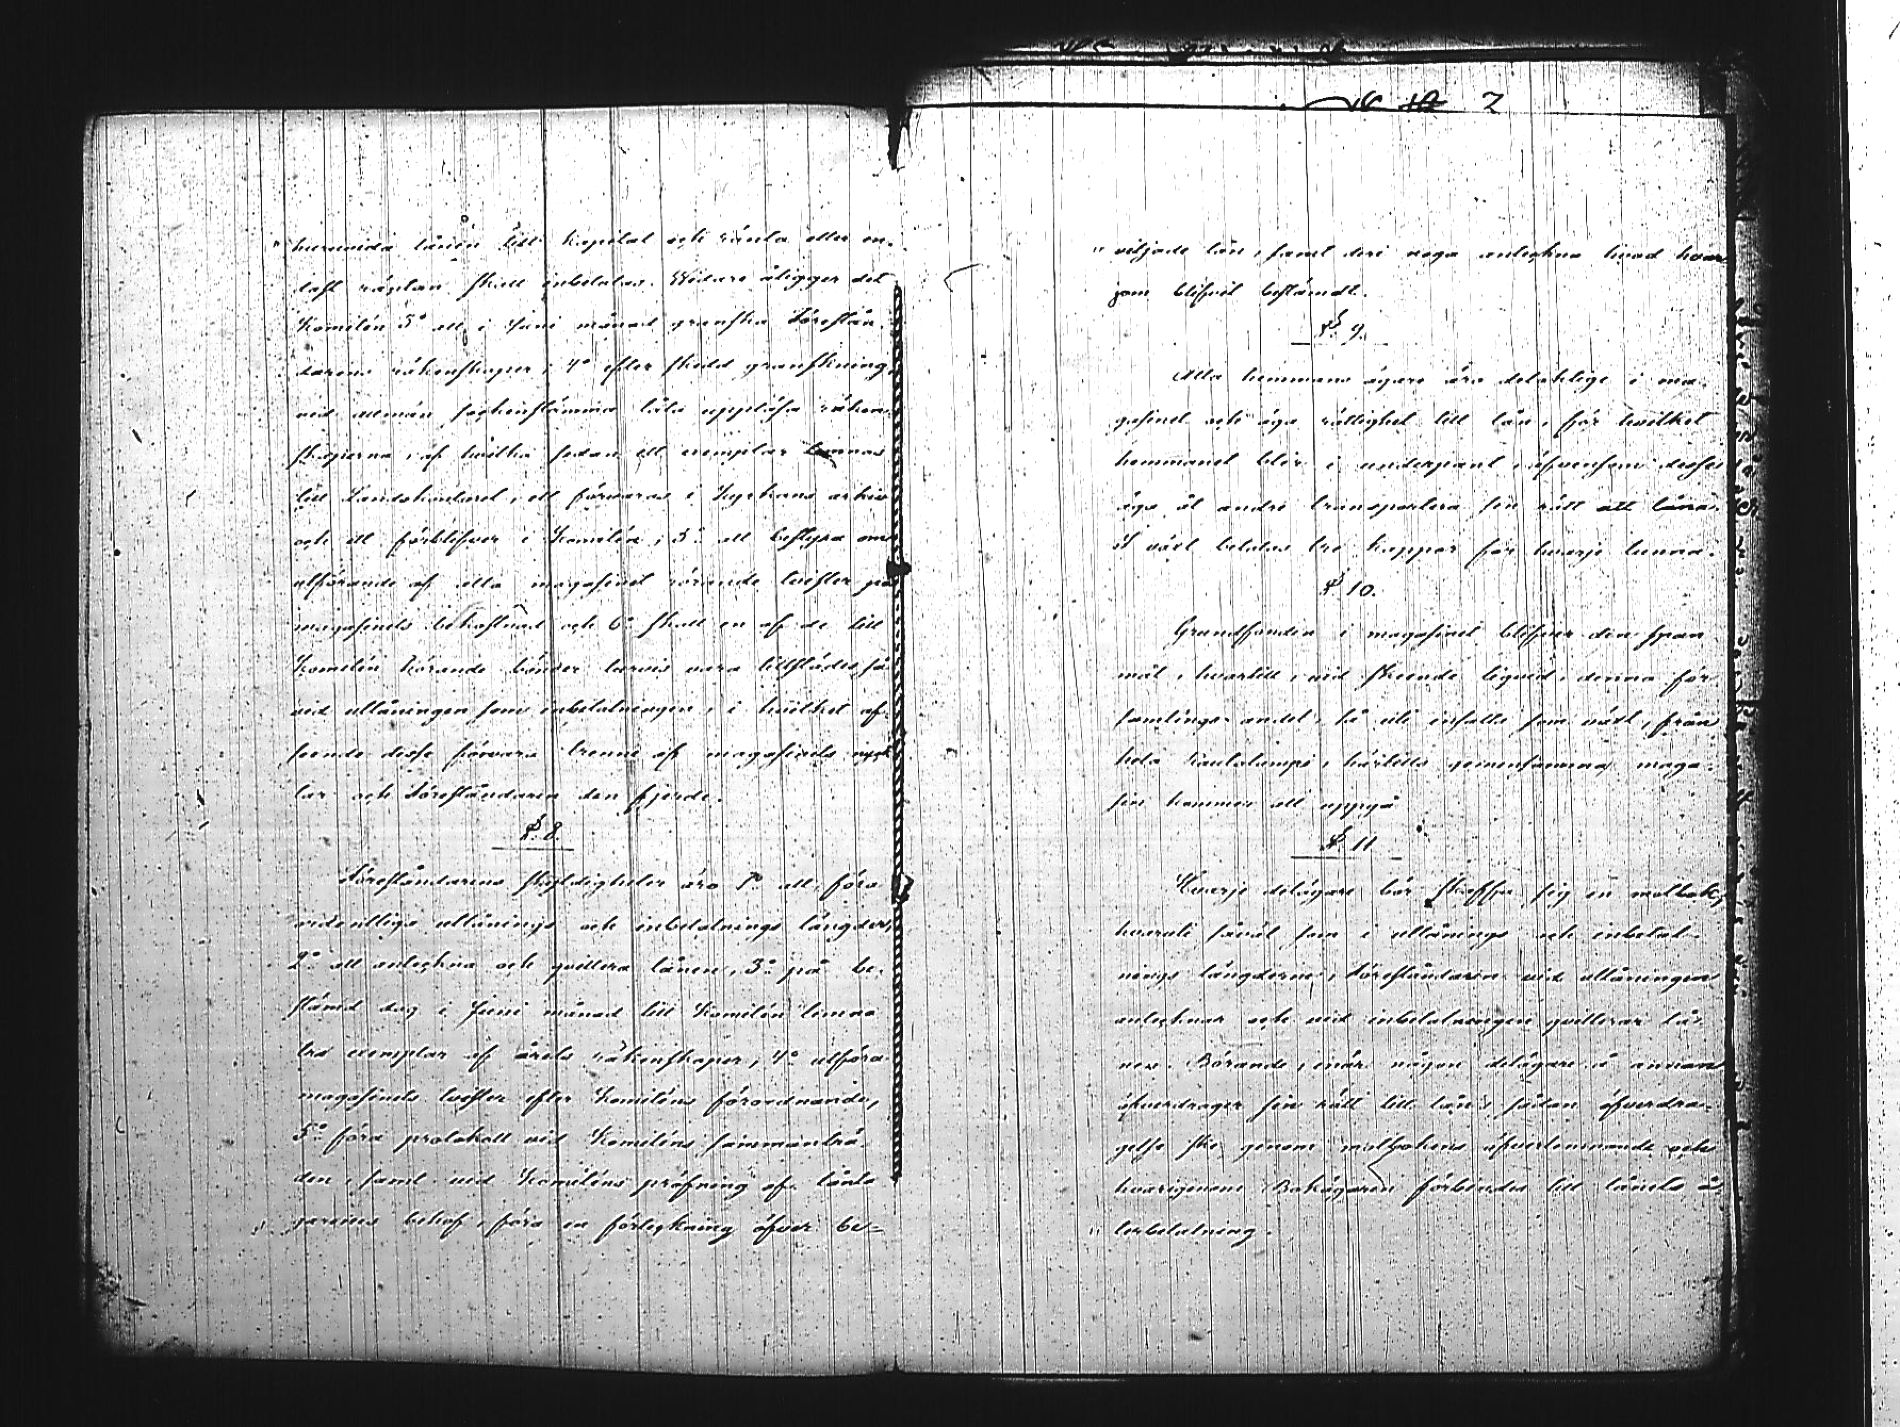 huruvida lånen till kapital och ränta eller en-
dast räntan skall inbetalas. Widare åligger det
Komitén 3º att i Juni månad granska Förestån-
darens räkenskaper; 4º efter skedd granskning,
vid allmän sockenstämma låta uppläsa räken-
skaperna, af hvilka sedan ett exemplar lemnas
till Landskontoret, ett förvaras i Kyrkans arkiv
och ett förblifver i Komitén; 5º att besörja om
utförande af alla magasinet rörande tvister på
magasinets bekostnad och 6º skall en af de till
Komitén hörande bönder turvis vara tillstädes, så
vid utlåningen som inbetalningen, i hvilket af-
seende desse förvara trenne af magasinets nyck-
lar och Föreståndaren den fjerde.
§ 8.
Föreståndarens skyldigheter äro 1º att föra
ordentliga utlånings och inbetalnings längder,
2º att anteckna och qvittera lånen, 3º på be-
stämd dag i Juni månad till Komitén lemna
tre exemplar af årets räkenskaper, 4º utföra
magasinets tvister efter Komiténs förordnande,
5º föra protokoll vid Komiténs sammanträ-
den, samt vid Komiténs pröfning af lånta-
garens behof, föra en förteckning öfver be-
7
viljade lån, samt deri noga anteckna hvad hvar
som blifvit bestämdt.
§ 9.
Alla hemmans ägare äro delaktige i ma-
gasinet och äga rättighet till lån, för hvilket
hemmanet blir i underpant, äfvensom desse
äga åt andre transportera sin rätt att låna.
I växt betalas tre kappor för hvarje tunna.
§ 10.
Grundfonden i magasinet blifver den span-
mål, hvartill, vid skeende liqvid, denna för-
samlings andel, så väl infalla som växt, från
hela härtills gemensamma maga-
sin kommer att uppgå
§ 11
Hvarje delägare bör skaffa sig en motbok,
hvaruti såväl som i utlånings och inbetal-
nings längderne, Föreståndaren vid utlåningen
antecknar och vid inbetalningen qvitterar lå-
nen. Börande, när någon delägare å annan
öfverdrager sin rätt till lån, sådan öfverdra-
gelse ske genom motbokens öfverlemnande och
hvarigenom Bokägaren förbindes till lånets å-
terbetalning.